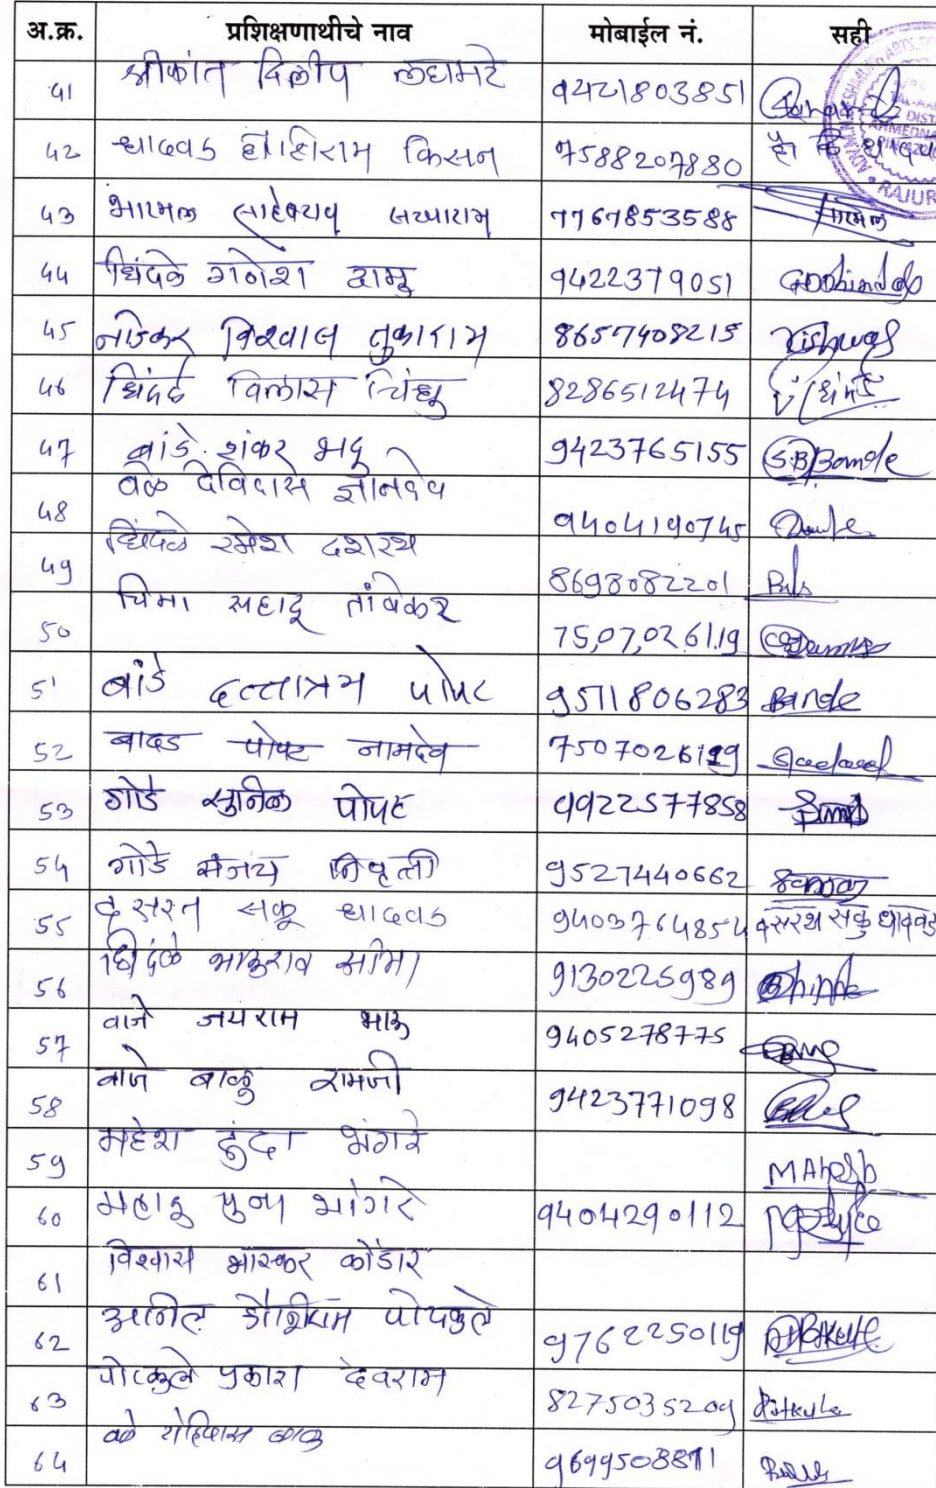 अ.क्र. प्रशिक्षणाथीचे नाव मोबाईल नं. सही
41 श्रीकांत दिलीप लहामटे 9421803851
42 धादवड किसन 7588207880
43 भारमल साहेबराव सखाराम 7767853588 भारमल
44 धिंदळे गणेश दामु 9422379051
45 विश्वास तुकाराम 8657408215 Vishwas
46 विलास चिंधु 8286512474
47 बांडे. शंकर भदु 9423765155 S.B Bande
48 वळे देविदास ज्ञानदेव 9404190745
49 धिंदळे रमेश दशरथ 8698082201
50 चिमा सहादू तांबेकर 75,07,02,61,19
51 बांडे दत्तात्रय पोपट 9511806283 Bande
52 बादड पोपट नामदेव 7507026119
53 गोडे सुनिल पोपट 9922577858
54 गोडे संजय निवृत्ती 9527440662
55 दसरत सकू धादवड 9403764854 दसरथ सकु धादवड
56 धिंदळे भाऊराव भीमा 9130225989
57 वाजे जयराम भाऊ 9405278775
58 वाजे बाळु रामजी 9423771098
59 महेश कुंदा भांगरे MAhesh
60 भांगरे 9404290112
61 विश्वास भास्कर कोंडार
62 अनिल पोटकुले 9762250119
63 पोटकुले प्रकाश देवराम 8275035209 Potkule
64 वळे रोहिदास बाळु 9699508871
RAJUR